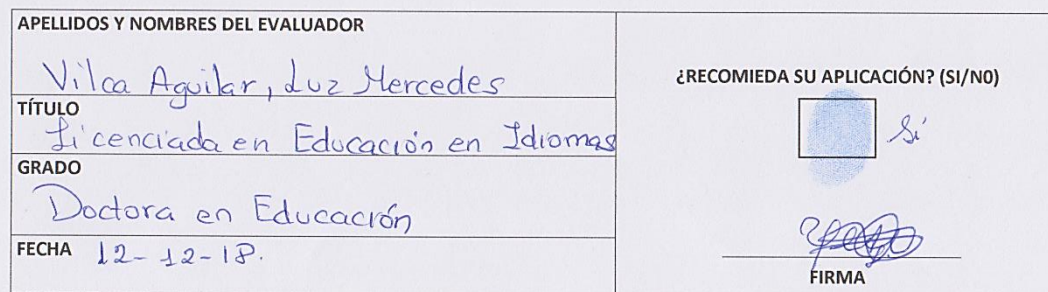 APELLIDOS Y NOMBRES DEL EVALUADOR
Vilca Aguilar, Luz Mercedes
TÍTULO
Licenciada en Educación en Idiomas
GRADO
Doctora en Educación
FECHA 12-12-18.
¿RECOMIEDA SU APLICACIÓN? (SI/N0)
Sí
FIRMA